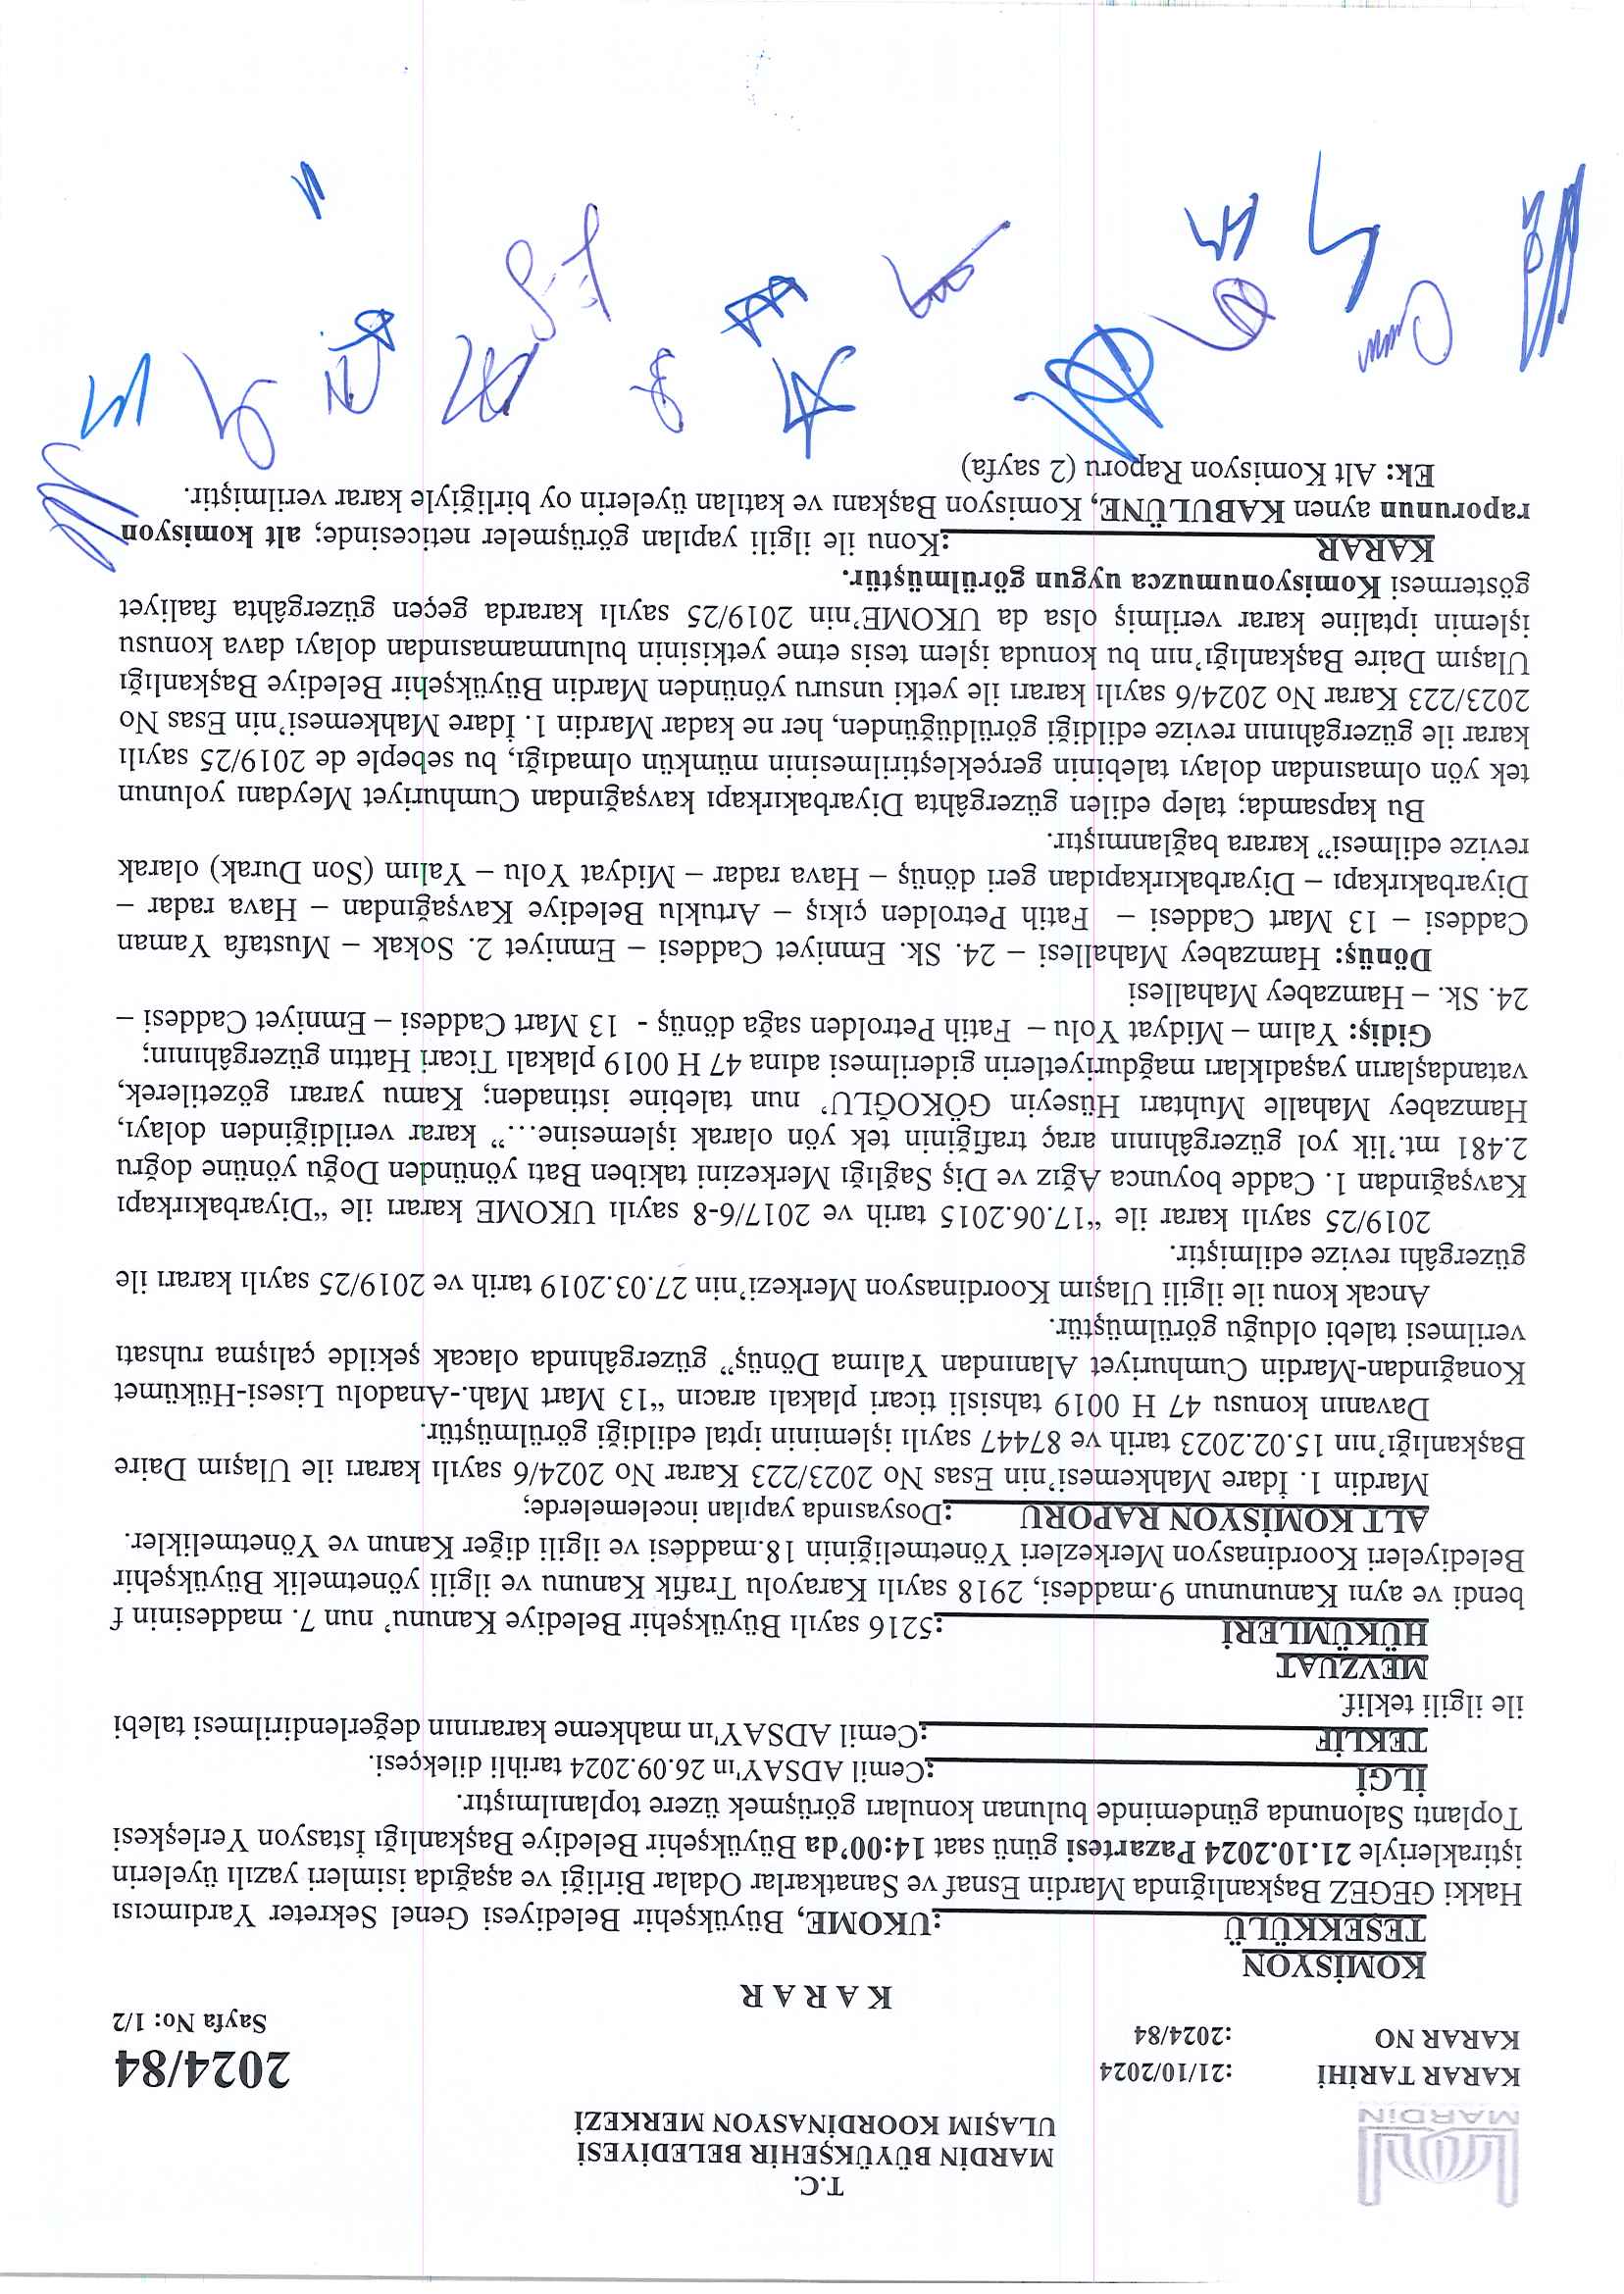 T.C.
MARDİN BÜYÜKŞEHİR BELEDİYESİ
ULAŞIM KOORDİNASYON MERKEZİ
MARDİN
KARAR TARİHİ :21/10/2024
KARAR NO :2024/84
2024/84
Sayfa No: 1/2
K A R A R
KOMİSYON
TEŞEKKÜLÜ :UKOME, Büyükşehir Belediyesi Genel Sekreter Yardımcısı
Hakki GEGEZ Başkanlığında Mardin Esnaf ve Sanatkarlar Odalar Birliği ve aşağıda isimleri yazılı üyelerin
iştirakleriyle 21.10.2024 Pazartesi günü saat 14:00'da Büyükşehir Belediye Başkanlığı İstasyon Yerleşkesi
Toplantı Salonunda gündeminde bulunan konuları görüşmek üzere toplanılmıştır.
İLGİ :Cemil ADSAY'ın 26.09.2024 tarihli dilekçesi.
TEKLİF :Cemil ADSAY'ın mahkeme kararının değerlendirilmesi talebi
ile ilgili teklif.
MEVZUAT
HÜKÜMLERİ :5216 sayılı Büyükşehir Belediye Kanunu' nun 7. maddesinin f
bendi ve aynı Kanununun 9.maddesi, 2918 sayılı Karayolu Trafik Kanunu ve ilgili yönetmelik Büyükşehir
Belediyeleri Koordinasyon Merkezleri Yönetmeliğinin 18.maddesi ve ilgili diğer Kanun ve Yönetmelikler.
ALT KOMİSYON RAPORU :Dosyasında yapılan incelemelerde;
Mardin 1. İdare Mahkemesi'nin Esas No 2023/223 Karar No 2024/6 sayılı kararı ile Ulaşım Daire
Başkanlığı'nın 15.02.2023 tarih ve 87447 sayılı işleminin iptal edildiği görülmüştür.
Davanın konusu 47 H 0019 tahsisli ticari plakalı aracın "13 Mart Mah.-Anadolu Lisesi-Hükümet
Konağından-Mardin Cumhuriyet Alanından Yalıma Dönüş" güzergâhında olacak şekilde çalışma ruhsatı
verilmesi talebi olduğu görülmüştür.
Ancak konu ile ilgili Ulaşım Koordinasyon Merkezi'nin 27.03.2019 tarih ve 2019/25 sayılı kararı ile
güzergâhı revize edilmiştir.
2019/25 sayılı karar ile "17.06.2015 tarih ve 2017/6-8 sayılı UKOME kararı ile "Diyarbakırkapı
Kavşağından 1. Cadde boyunca Ağız ve Diş Sağlığı Merkezini takiben Batı yönünden Doğu yönüne doğru
2.481 mt.'lik yol güzergâhının araç trafiğinin tek yön olarak işlemesine…" karar verildiğinden dolayı,
Hamzabey Mahalle Muhtarı Hüseyin GÖKOĞLU' nun talebine istinaden; Kamu yararı gözetilerek,
vatandaşların yaşadıkları mağduriyetlerin giderilmesi adına 47 H 0019 plakalı Ticari Hattın güzergâhının;
Gidiş: Yalım – Midyat Yolu – Fatih Petrolden sağa dönüş - 13 Mart Caddesi – Emniyet Caddesi –
24. Sk. – Hamzabey Mahallesi
Dönüş: Hamzabey Mahallesi – 24. Sk. Emniyet Caddesi – Emniyet 2. Sokak – Mustafa Yaman
Caddesi – 13 Mart Caddesi – Fatih Petrolden çıkış – Artuklu Belediye Kavşağından – Hava radar –
Diyarbakırkapı – Diyarbakırkapıdan geri dönüş – Hava radar – Midyat Yolu – Yalım (Son Durak) olarak
revize edilmesi" karara bağlanmıştır.
Bu kapsamda; talep edilen güzergâhta Diyarbakırkapı kavşağından Cumhuriyet Meydanı yolunun
tek yön olmasından dolayı talebinin gerçekleştirilmesinin mümkün olmadığı, bu sebeple de 2019/25 sayılı
karar ile güzergâhının revize edildiği görüldüğünden, her ne kadar Mardin 1. İdare Mahkemesi'nin Esas No
2023/223 Karar No 2024/6 sayılı kararı ile yetki unsuru yönünden Mardin Büyükşehir Belediye Başkanlığı
Ulaşım Daire Başkanlığı'nın bu konuda işlem tesis etme yetkisinin bulunmamasından dolayı dava konusu
işlemin iptaline karar verilmiş olsa da UKOME'nin 2019/25 sayılı kararda geçen güzergâhta faaliyet
göstermesi Komisyonumuzca uygun görülmüştür.
KARAR :Konu ile ilgili yapılan görüşmeler neticesinde; alt komisyon
raporunun aynen KABULÜNE, Komisyon Başkanı ve katılan üyelerin oy birliğiyle karar verilmiştir.
Ek: Alt Komisyon Raporu (2 sayfa)